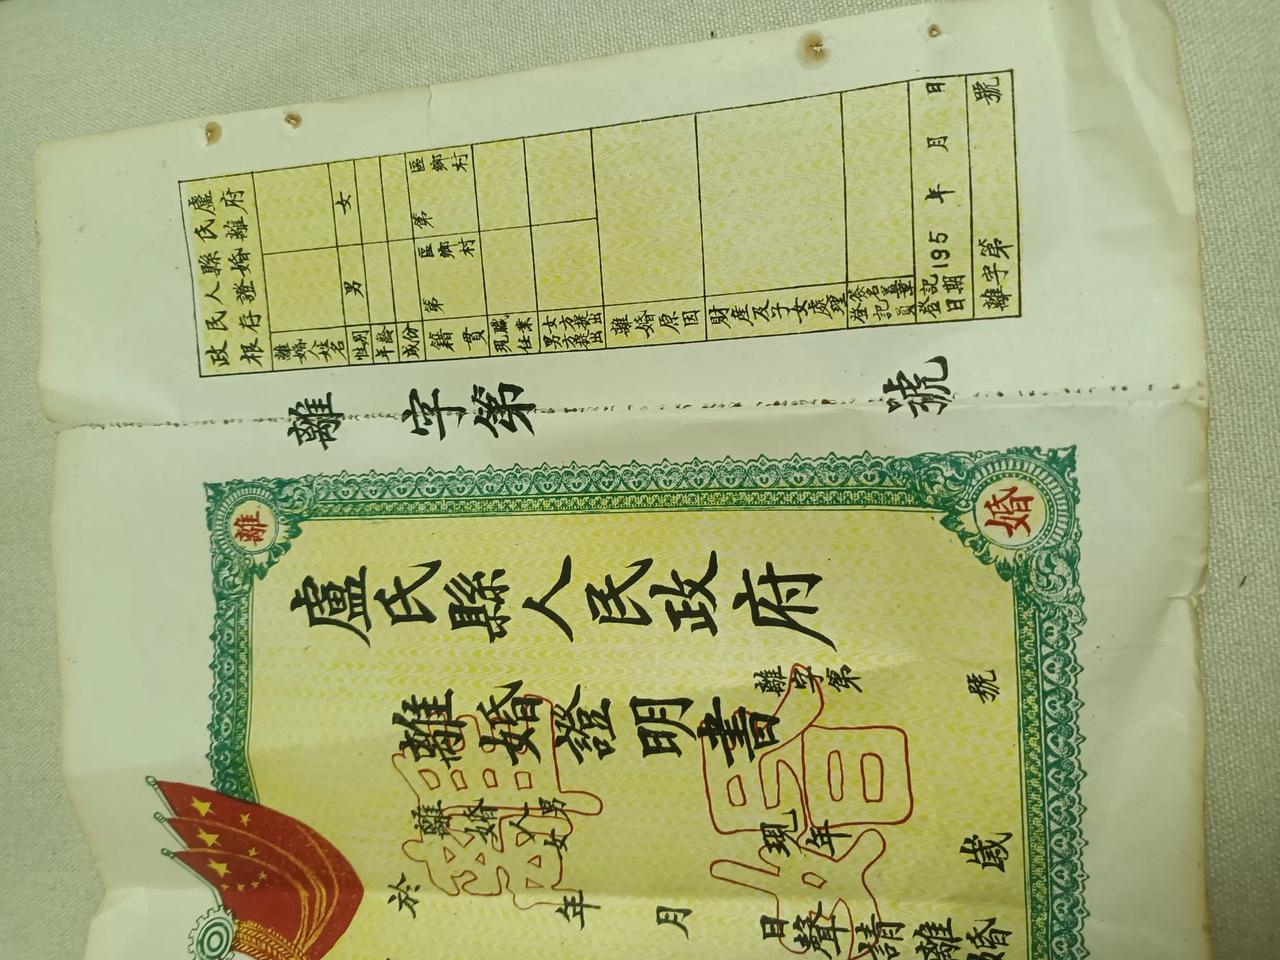 盧氏縣人民政
府離婚證存根
離婚人姓名
性別 男 女
年齡
成份
籍貫 第 區鄉村 第 區鄉村
現任職業
男方提出 女方提出
離婚原因
財產及子女處理
登記員簽名蓋章
登記日期 195 年 月 日
離字第 號
離字第 號
離 婚
盧氏縣人民政府
離婚證明書
離字第 號
離婚人男女 現年 歲
於 年 月 日聲請離婚